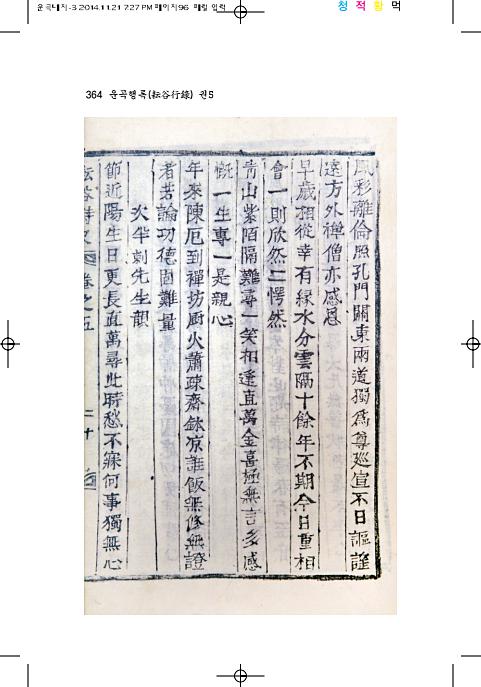 운곡내지-3 2014.11.21 7:27 PM 페이지96 패밀 입력
청 적 황 먹
364 운곡행록(耘谷行錄) 권5
風彩離倫照孔門關東兩道獨爲尊巡宣不日謳謠
遠方外禪僧亦感恩
早歲相從幸有緣水分雲隔十餘年不期今日重相
會一則欣然二愕然
靑山紫陌隔難尋一笑相逢直萬金喜極無言多感
慨一生專一是親心
年來陳厄到禪坊廚火蕭疎齋鉢凉誰飯無修無證
者若論功德固難量
次半刺先生韻
節近陽生日更長直萬尋此時愁不寐何事獨無心
耘谷詩史 卷之五 二十